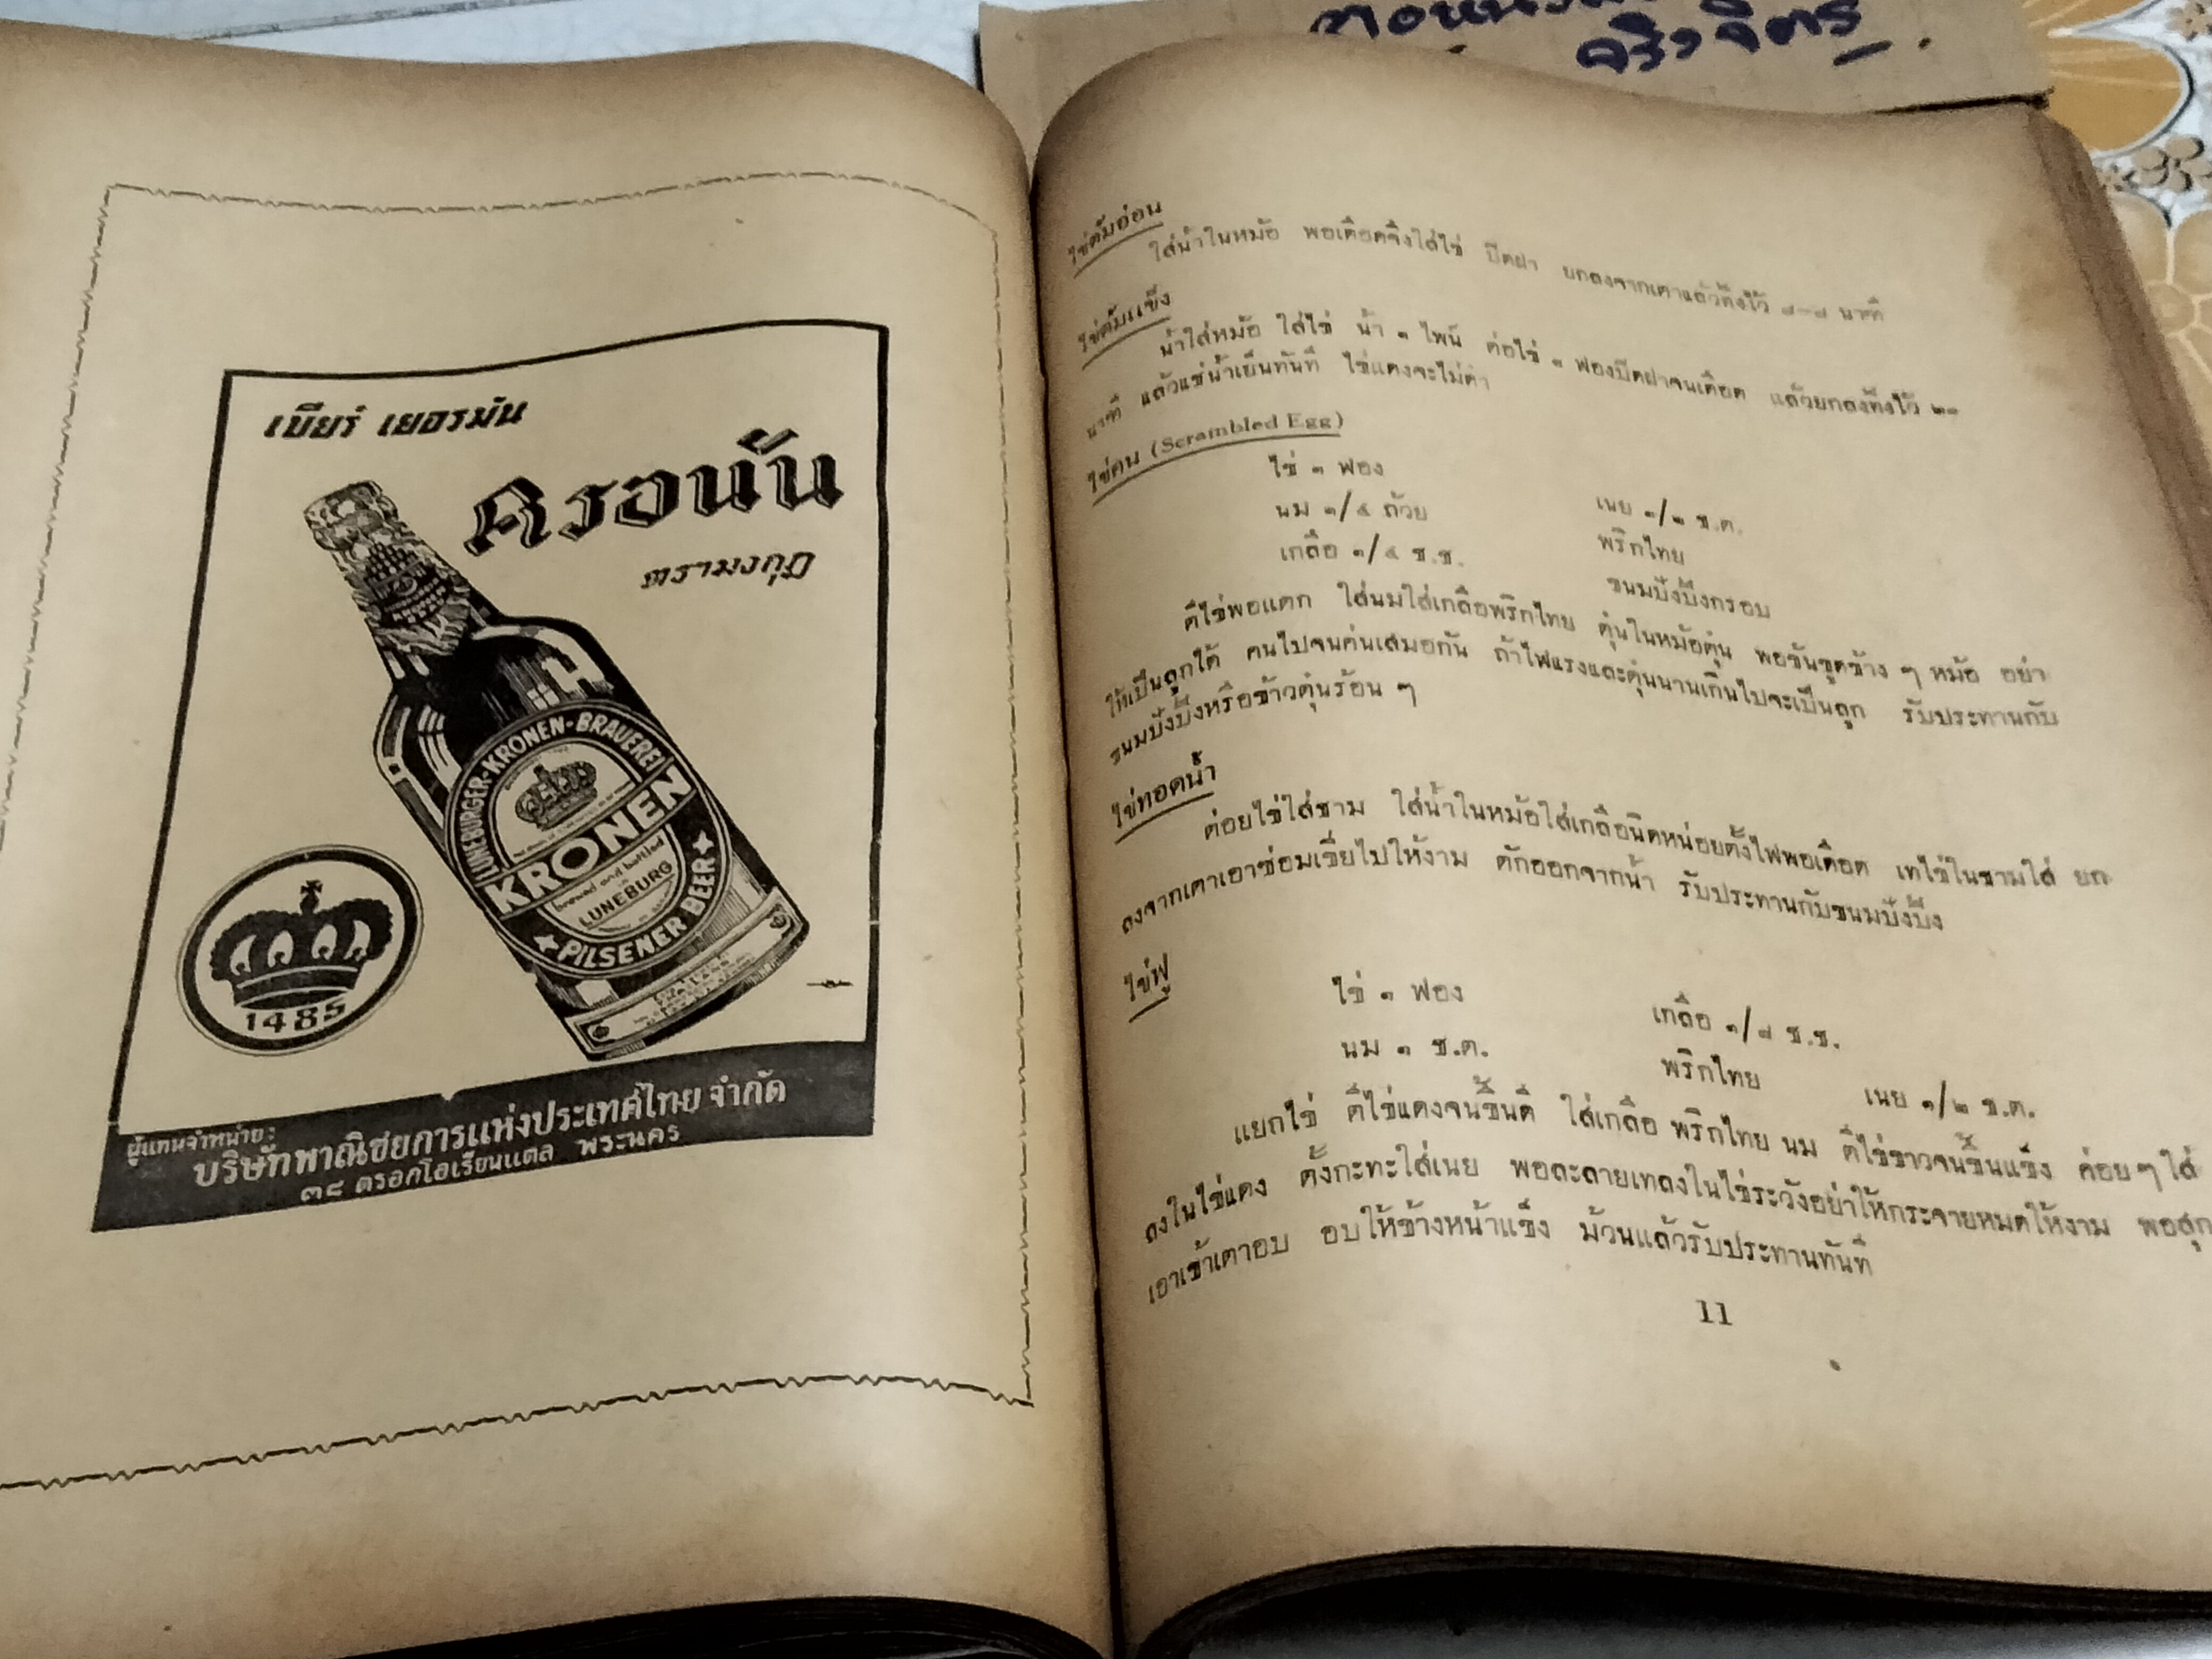 จิวจิตร
เบียร์ เยอรมัน
ครอนั้น
ตรามงกุฎ
LUNEBURGER-KRONEN-BRAUEREI
KRONEN
brewed and bottled
LUNEBURG
★ PILSENER BEER ★
1485
ผู้แทนจำหน่าย:
บริษัทพาณิชยการแห่งประเทศไทย จำกัด
๓๘ ตรอกโอเรียนแตล พระนคร
ไข่ต้มอ่อน
ใส่น้ำในหม้อ พอเดือดจึงใส่ไข่ ปิดฝา ยกลงจากเตาแล้วทิ้งไว้ นาฑี
ไข่ต้มแข็ง
น้ำใส่หม้อ ใส่ไข่ น้ำ ๑ ไพน์ ต่อไข่ ๑ ฟองปิดฝาจนเดือด แล้วยกลงทิ้งไว้ ๒๐
นาฑี แล้วแช่น้ำเย็นทันที ไข่แดงจะไม่ดำ
ไข่คน (Scrambled Egg)
ไข่ ๑ ฟอง
นม ๑/๔ ถ้วย
เนย ๑/๒ ช.ต.
เกลือ ๑/๔ ช.ช.
พริกไทย
ขนมปังปิ้งกรอบ
ตีไข่พอแตก ใส่นมใส่เกลือพริกไทย ตุ๋นในหม้อตุ๋น พอข้นขูดข้าง ๆ หม้อ อย่า
ให้เป็นลูกได้ คนไปจนค่นเสมอกัน ถ้าไฟแรงและตุ๋นนานเกินไปจะเป็นลูก รับประทานกับ
ขนมปังปิ้งหรือข้าวตุ๋นร้อน ๆ
ไข่ทอดน้ำ
ต่อยไข่ใส่ชาม ใส่น้ำในหม้อใส่เกลือนิดหน่อยตั้งไฟพอเดือด เทไข่ในชามใส่ ยก
ลงจากเตาเอาซ่อมเขี่ยไปให้งาม ตักออกจากน้ำ รับประทานกับขนมปังปิ้ง
ไข่ฟู
ไข่ ๑ ฟอง
เกลือ ๑/๘ ช.ช.
นม ๑ ช.ต.
พริกไทย
เนย ๑/๒ ช.ต.
แยกไข่ ตีไข่แดงจนขึ้นดี ใส่เกลือ พริกไทย นม ตีไข่ขาวจนขึ้นแข็ง ค่อย ๆ ใส่
ลงในไข่แดง ตั้งกะทะใส่เนย พอละลายเทลงในไข่ระวังอย่าให้กระจายหมดให้งาม พอสุก
เอาเข้าเตาอบ อบให้ข้างหน้าแข็ง ม้วนแล้วรับประทานทันที
11